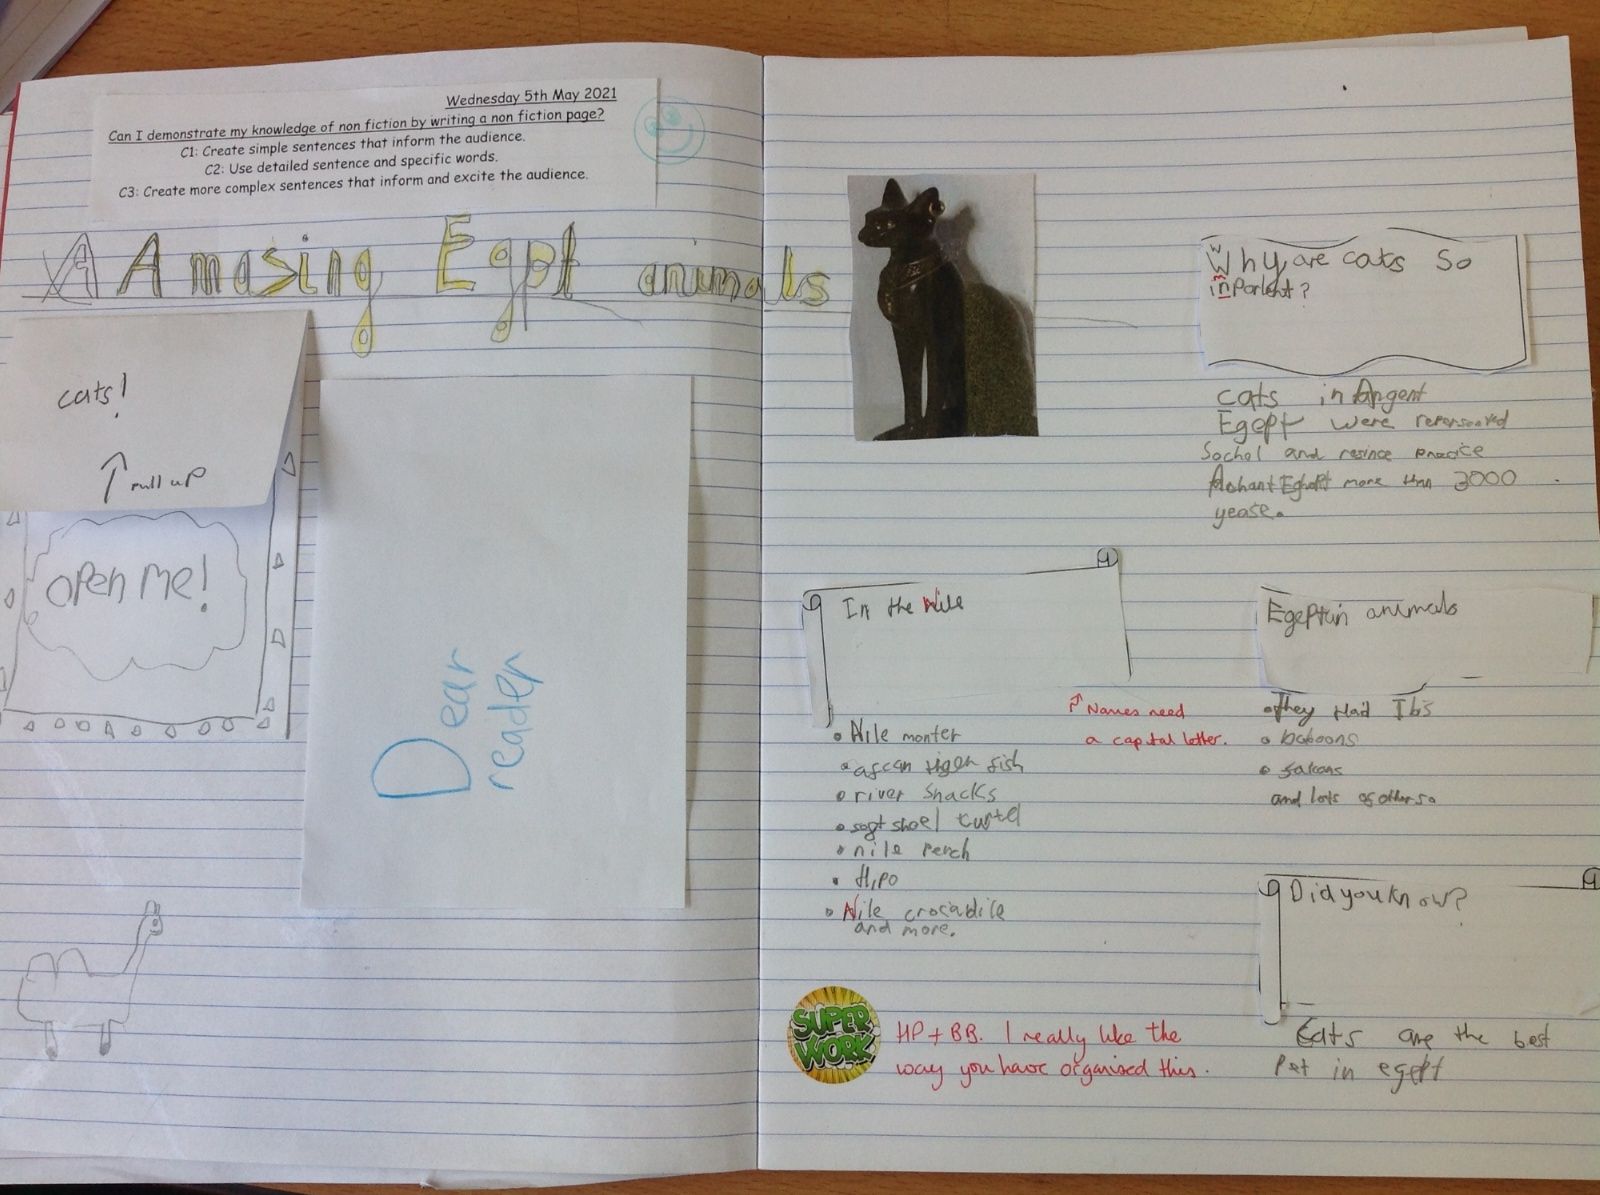 Wednesday 5th May 2021
Can I demonstrate my knowledge of non fiction by writing a non fiction page?
C1: Create simple sentences that inform the audience.
C2: Use detailed sentence and specific words.
C3: Create more complex sentences that inform and excite the audience.
A Amasing Egpt animals
cats!
pull up
open me!
Dear
reader
Why are cats so
imporlent?
cats in Angent
Egept were
Sochel and
more than 3000
yease.
In the Nile
Nile monter
afcan tiger fish
river snacks
soft shoel turtel
nile perch
Hipo
Nile crocadile
and more.
Names need
a capital letter.
Egeptain animals
They Had Ibs
baboons
falcons
and lots of others.
Did you know?
Cats are the best
Pet in egept
SUPER
WORK
HP + BB. I really like the
way you have organised this.